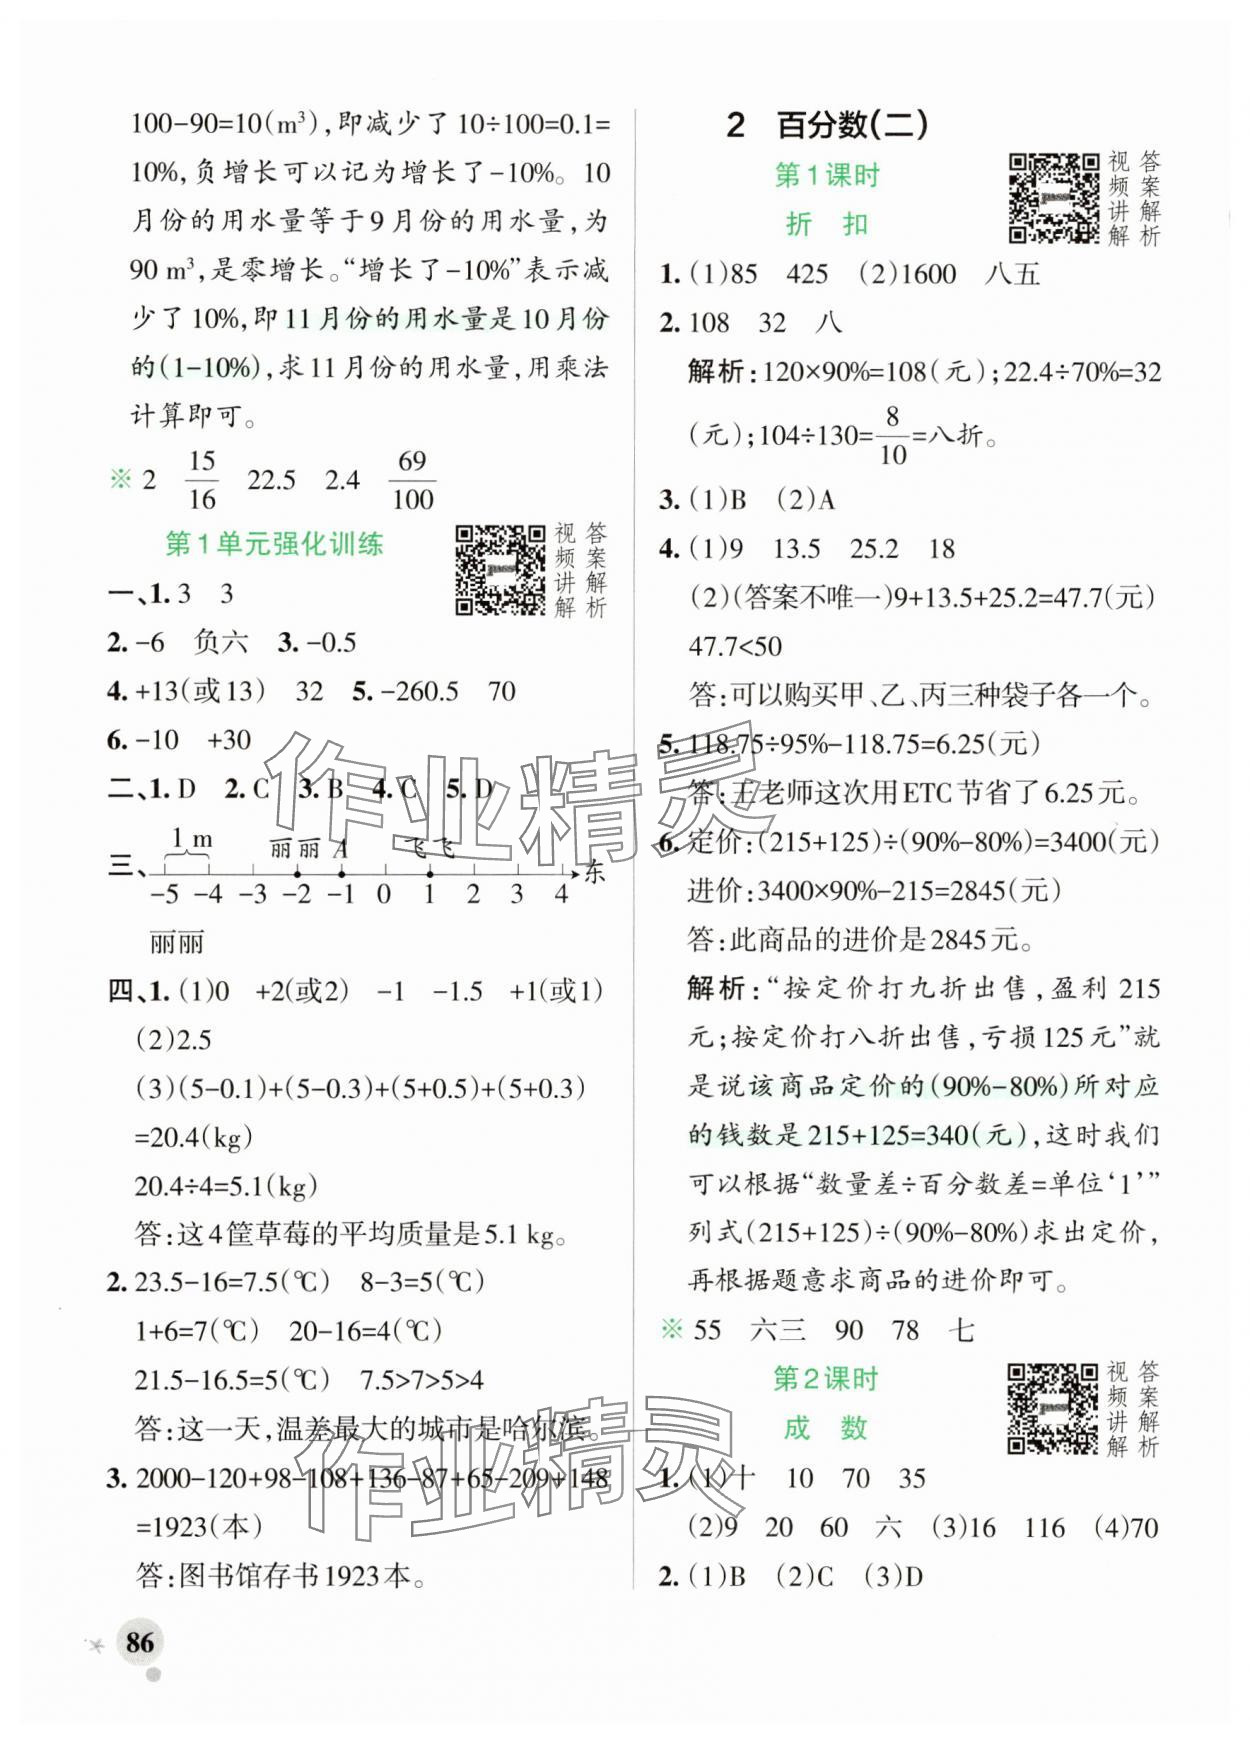 100-90=10(m³),即减少了10÷100=0.1=
10%,负增长可以记为增长了-10%。10
月份的用水量等于9月份的用水量,为
90 m³,是零增长。“增长了-10%”表示减
少了10%,即11月份的用水量是10月份
的(1-10%),求11月份的用水量,用乘法
计算即可。
※ 2 15/16 22.5 2.4 69/100
第1单元强化训练
视频讲解
答案解析
一、1.3 3
2.-6 负六 3.-0.5
4.+13(或13) 32 5.-260.5 70
6.-10 +30
二、1.D 2.C 3.B 4.C 5.D
三、
1 m 丽丽 A 飞飞
-5 -4 -3 -2 -1 0 1 2 3 4 东
丽丽
四、1.(1)0 +2(或2) -1 -1.5 +1(或1)
(2)2.5
(3)(5-0.1)+(5-0.3)+(5+0.5)+(5+0.3)
=20.4(kg)
20.4÷4=5.1(kg)
答:这4筐草莓的平均质量是5.1 kg。
2.23.5-16=7.5(℃) 8-3=5(℃)
1+6=7(℃) 20-16=4(℃)
21.5-16.5=5(℃) 7.5>7>5>4
答:这一天,温差最大的城市是哈尔滨。
3.2000-120+98-108+136-87+65-209+148
=1923(本)
答:图书馆存书1923本。
86
2 百分数(二)
第1课时
折 扣
视频讲解
答案解析
1.(1)85 425 (2)1600 八五
2.108 32 八
解析:120×90%=108(元);22.4÷70%=32
(元);104÷130=8/10=八折。
3.(1)B (2)A
4.(1)9 13.5 25.2 18
(2)(答案不唯一)9+13.5+25.2=47.7(元)
47.7<50
答:可以购买甲、乙、丙三种袋子各一个。
5.118.75÷95%-118.75=6.25(元)
答:王老师这次用ETC节省了6.25元。
6.定价:(215+125)÷(90%-80%)=3400(元)
进价:3400×90%-215=2845(元)
答:此商品的进价是2845元。
解析:“按定价打九折出售,盈利215
元;按定价打八折出售,亏损125元”就
是说该商品定价的(90%-80%)所对应
的钱数是215+125=340(元),这时我们
可以根据“数量差÷百分数差=单位‘1’”
列式(215+125)÷(90%-80%)求出定价,
再根据题意求商品的进价即可。
※ 55 六三 90 78 七
第2课时
成 数
视频讲解
答案解析
1.(1)十 10 70 35
(2)9 20 60 六 (3)16 116 (4)70
2.(1)B (2)C (3)D
作业精灵
作业精灵